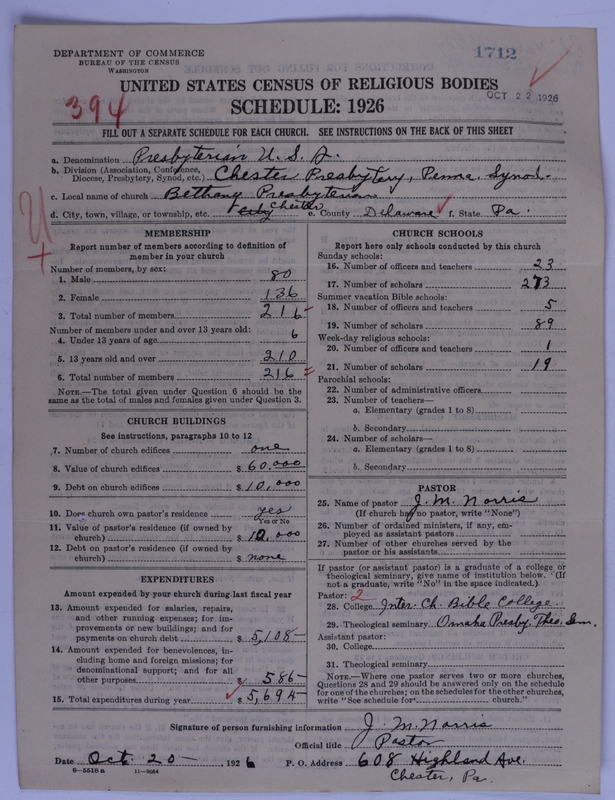 DEPARTMENT OF COMMERCE
BUREAU OF THE CENSUS
WASHINGTON
1712
UNITED STATES CENSUS OF RELIGIOUS BODIES
OCT 22 1926
394
SCHEDULE: 1926
FILL OUT A SEPARATE SCHEDULE FOR EACH CHURCH. SEE INSTRUCTIONS ON THE BACK OF THIS SHEET
a. Denomination Presbyterian U. S. A.
b. Division (Association, Conference, Diocese, Presbytery, Synod, etc.) Chester Presbytery, Penna. Synod.
c. Local name of church Bethany Presbyterian
d. City, town, village, or township, etc. City Chester e. County Delaware f. State Pa.
MEMBERSHIP
Report number of members according to definition of
member in your church
Number of members, by sex:
1. Male 80
2. Female 136
3. Total number of members 216
Number of members under and over 13 years old:
4. Under 13 years of age 6
5. 13 years old and over 210
6. Total number of members 216
NOTE.—The total given under Question 6 should be the
same as the total of males and females given under Question 3.
CHURCH BUILDINGS
See instructions, paragraphs 10 to 12
7. Number of church edifices one
8. Value of church edifices $ 60,000
9. Debt on church edifices $ 10,000
10. Does church own pastor's residence? yes
Yes or No
11. Value of pastor's residence (if owned by
church) $ 10,000
12. Debt on pastor's residence (if owned by
church) $ none
EXPENDITURES
Amount expended by your church during last fiscal year
13. Amount expended for salaries, repairs,
and other running expenses; for im-
provements or new buildings; and for
payments on church debt $ 5,108-
14. Amount expended for benevolences, in-
cluding home and foreign missions; for
denominational support; and for all
other purposes $ 586-
15. Total expenditures during year $ 5,694-
CHURCH SCHOOLS
Report here only schools conducted by this church
Sunday schools:
16. Number of officers and teachers 23
17. Number of scholars 273
Summer vacation Bible schools:
18. Number of officers and teachers 5
19. Number of scholars 89
Week-day religious schools:
20. Number of officers and teachers 1
21. Number of scholars 19
Parochial schools:
22. Number of administrative officers
23. Number of teachers—
a. Elementary (grades 1 to 8)
b. Secondary
24. Number of scholars—
a. Elementary (grades 1 to 8)
b. Secondary
PASTOR
25. Name of pastor J. M. Norris
(If church has no pastor, write "None")
26. Number of ordained ministers, if any, em-
ployed as assistant pastors
27. Number of other churches served by the
pastor or his assistants
If pastor (or assistant pastor) is a graduate of a college or
theological seminary, give name of institution below. (If
not a graduate, write "No" in the space indicated.)
Pastor: 2
28. College Inter. Ch. Bible College.
29. Theological seminary Omaha Presby. Theo. Sem.
Assistant pastor:
30. College
31. Theological seminary
NOTE.—Where one pastor serves two or more churches,
Questions 28 and 29 should be answered only on the schedule
for one of the churches; on the schedules for the other churches,
write "See schedule for church."
Signature of person furnishing information J. M. Norris
Official title Pastor
Date Oct. 20- 1926 P. O. Address 608 Highland Ave.
8—5518 a 11—9064 Chester, Pa.